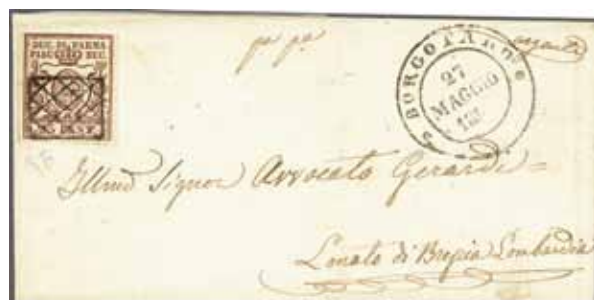 DUC. DI PARMA
PIAC. ECC. ECC.
25 CENT.
pa pa
BORGOTARO
27
MAGGIO
185
Illmo Signor Avvocato Gerardi
Lonato di Brescia Lombardia